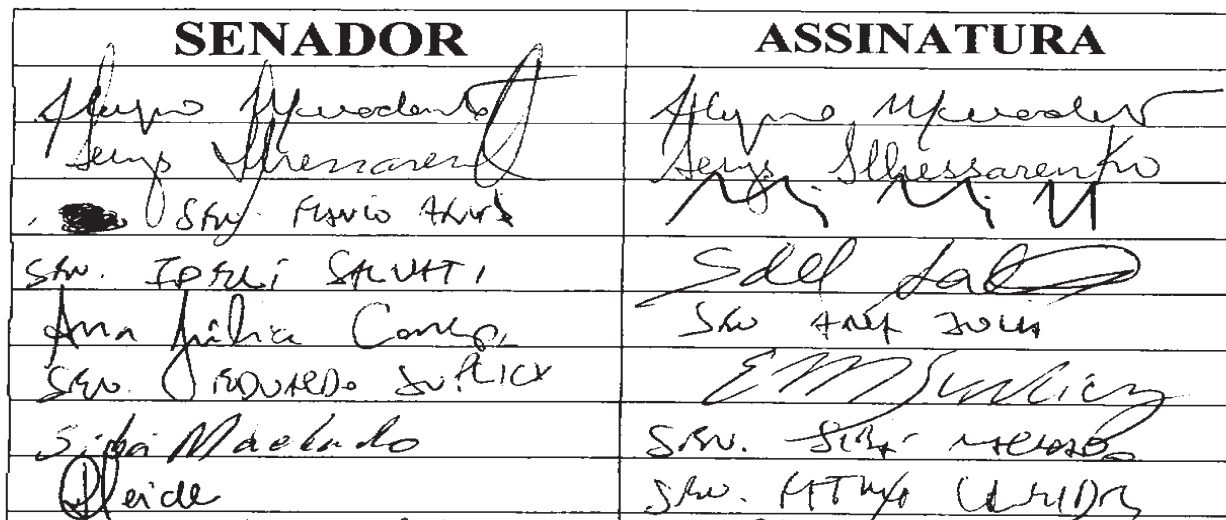 SENADOR ASSINATURA
Aloizio Mercadante Aloizio Mercadante
Serys Slhessarenko Serys Slhessarenko
SEN. FLAVIO ARNS
SEN. IDELI SALVATI
Ana Júlia Carepa SEN ANA JULIA
SEN. EDUARDO SUPLICY EMSuplicy
Sibá Machado SEN. SIBÁ MACHADO
SEN.